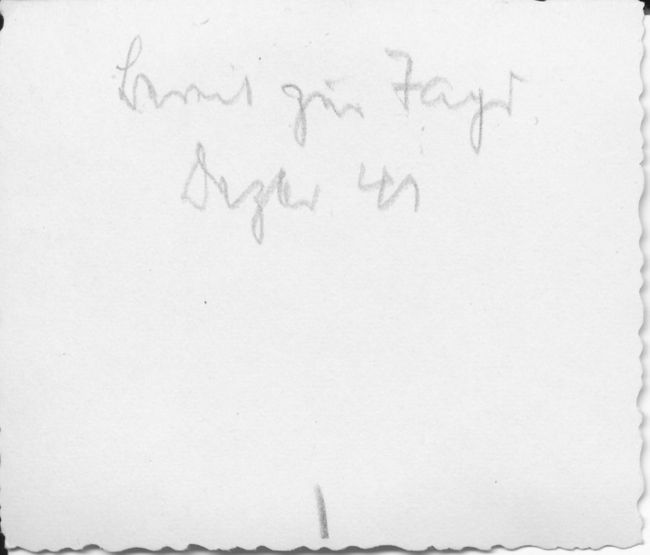 bereit zur Jagd
Dezbr 41